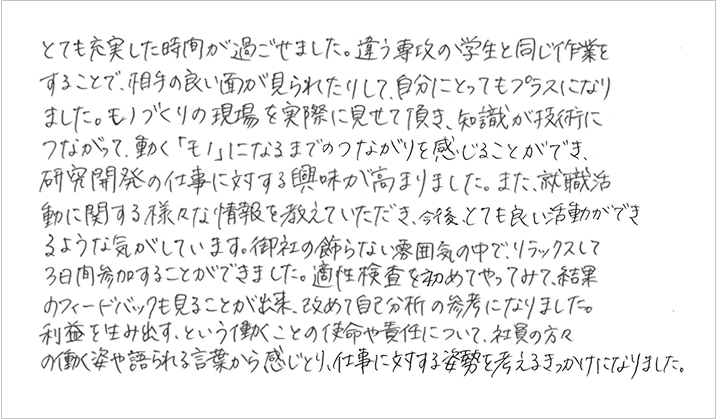 とても充実した時間が過ごせました。違う専攻の学生と同じ作業を
することで、相手の良い面が見られたりして、自分にとってもプラスになり
ました。モノづくりの現場を実際に見せて頂き、知識が技術に
つながって、動く「モノ」になるまでのつながりを感じることができ、
研究開発の仕事に対する興味が高まりました。また、就職活
動に関する様々な情報を教えていただき、今後、とても良い活動ができ
るような気がしています。御社の飾らない雰囲気の中で、リラックスして
3日間参加することができました。適性検査を初めてやってみて、結果
のフィードバックも見ることが出来、改めて自己分析の参考になりました。
利益を生み出す、という働くことの使命や責任について、社員の方々
の働く姿や語られる言葉から感じとり、仕事に対する姿勢を考えるきっかけになりました。